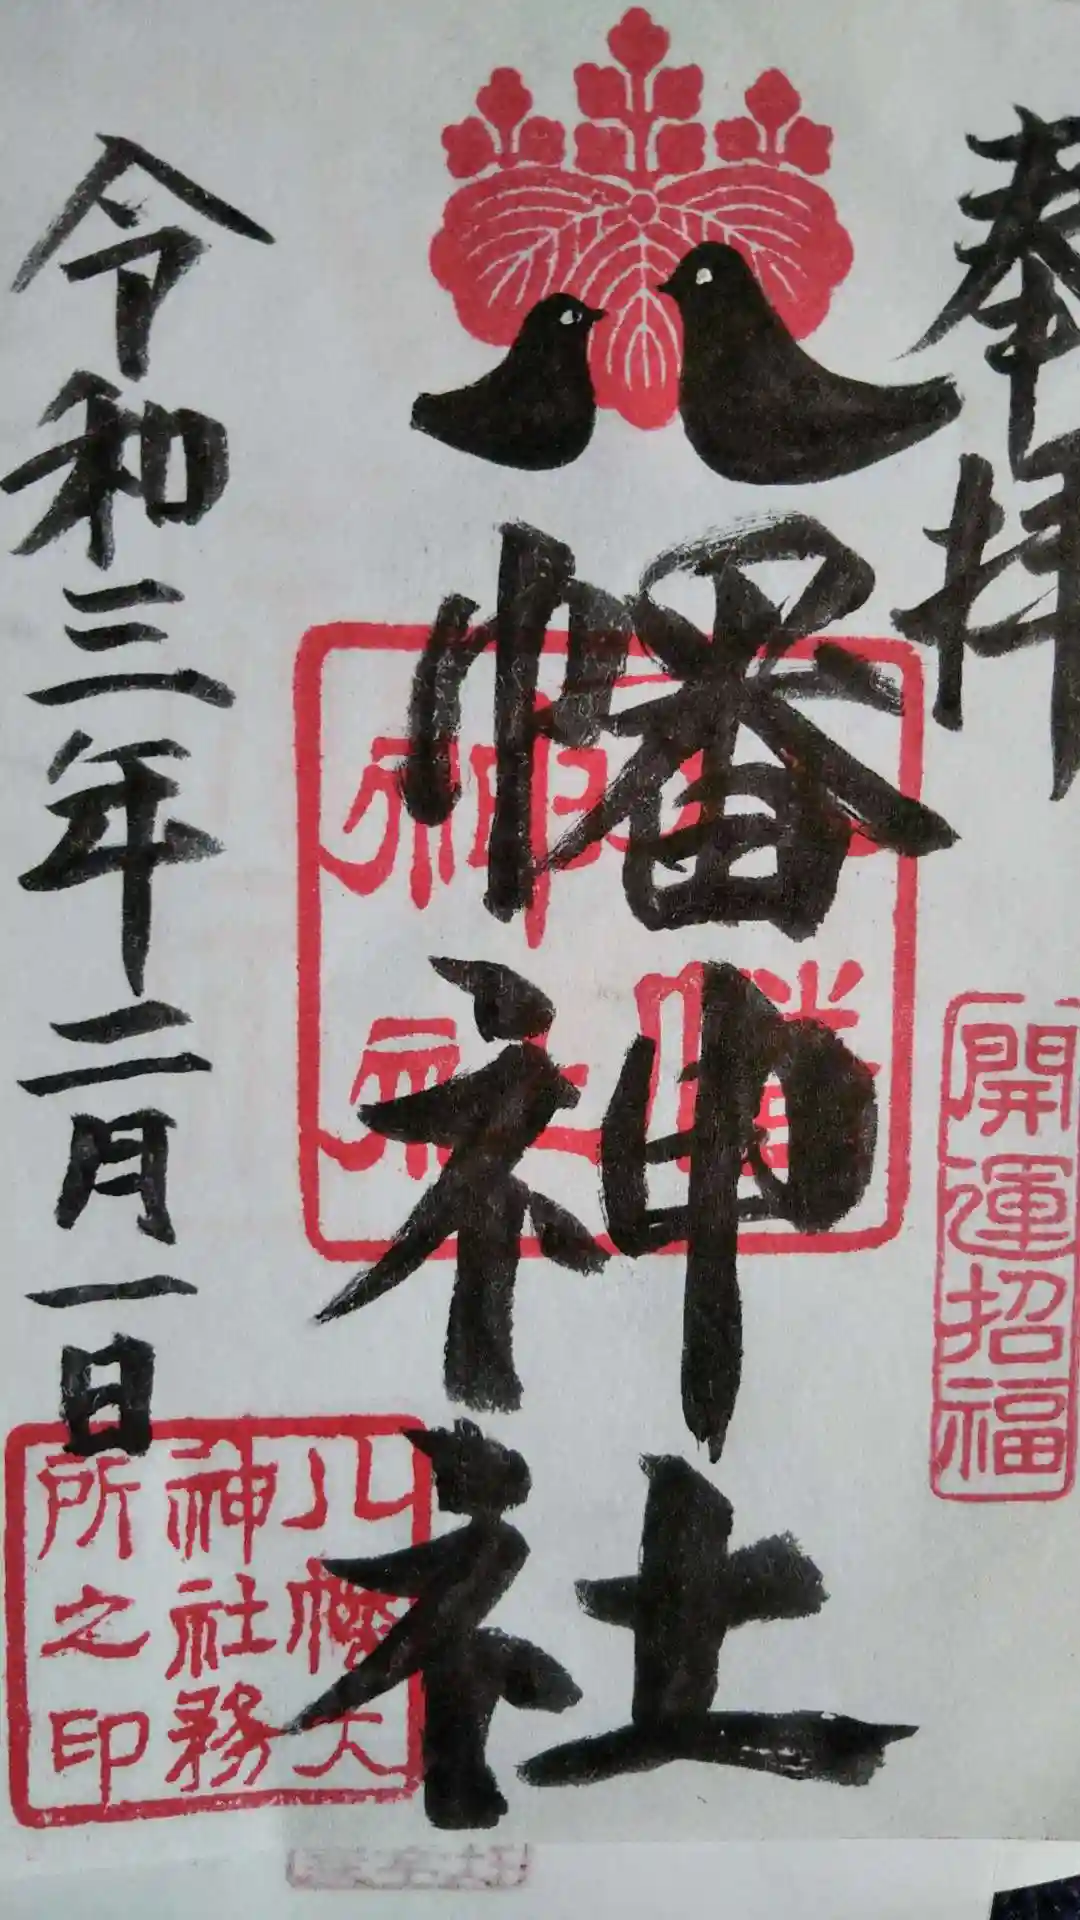 奉拝
開運招福
八幡神社
八幡
神社
八幡大
神社務
所之印
令和三年二月一日